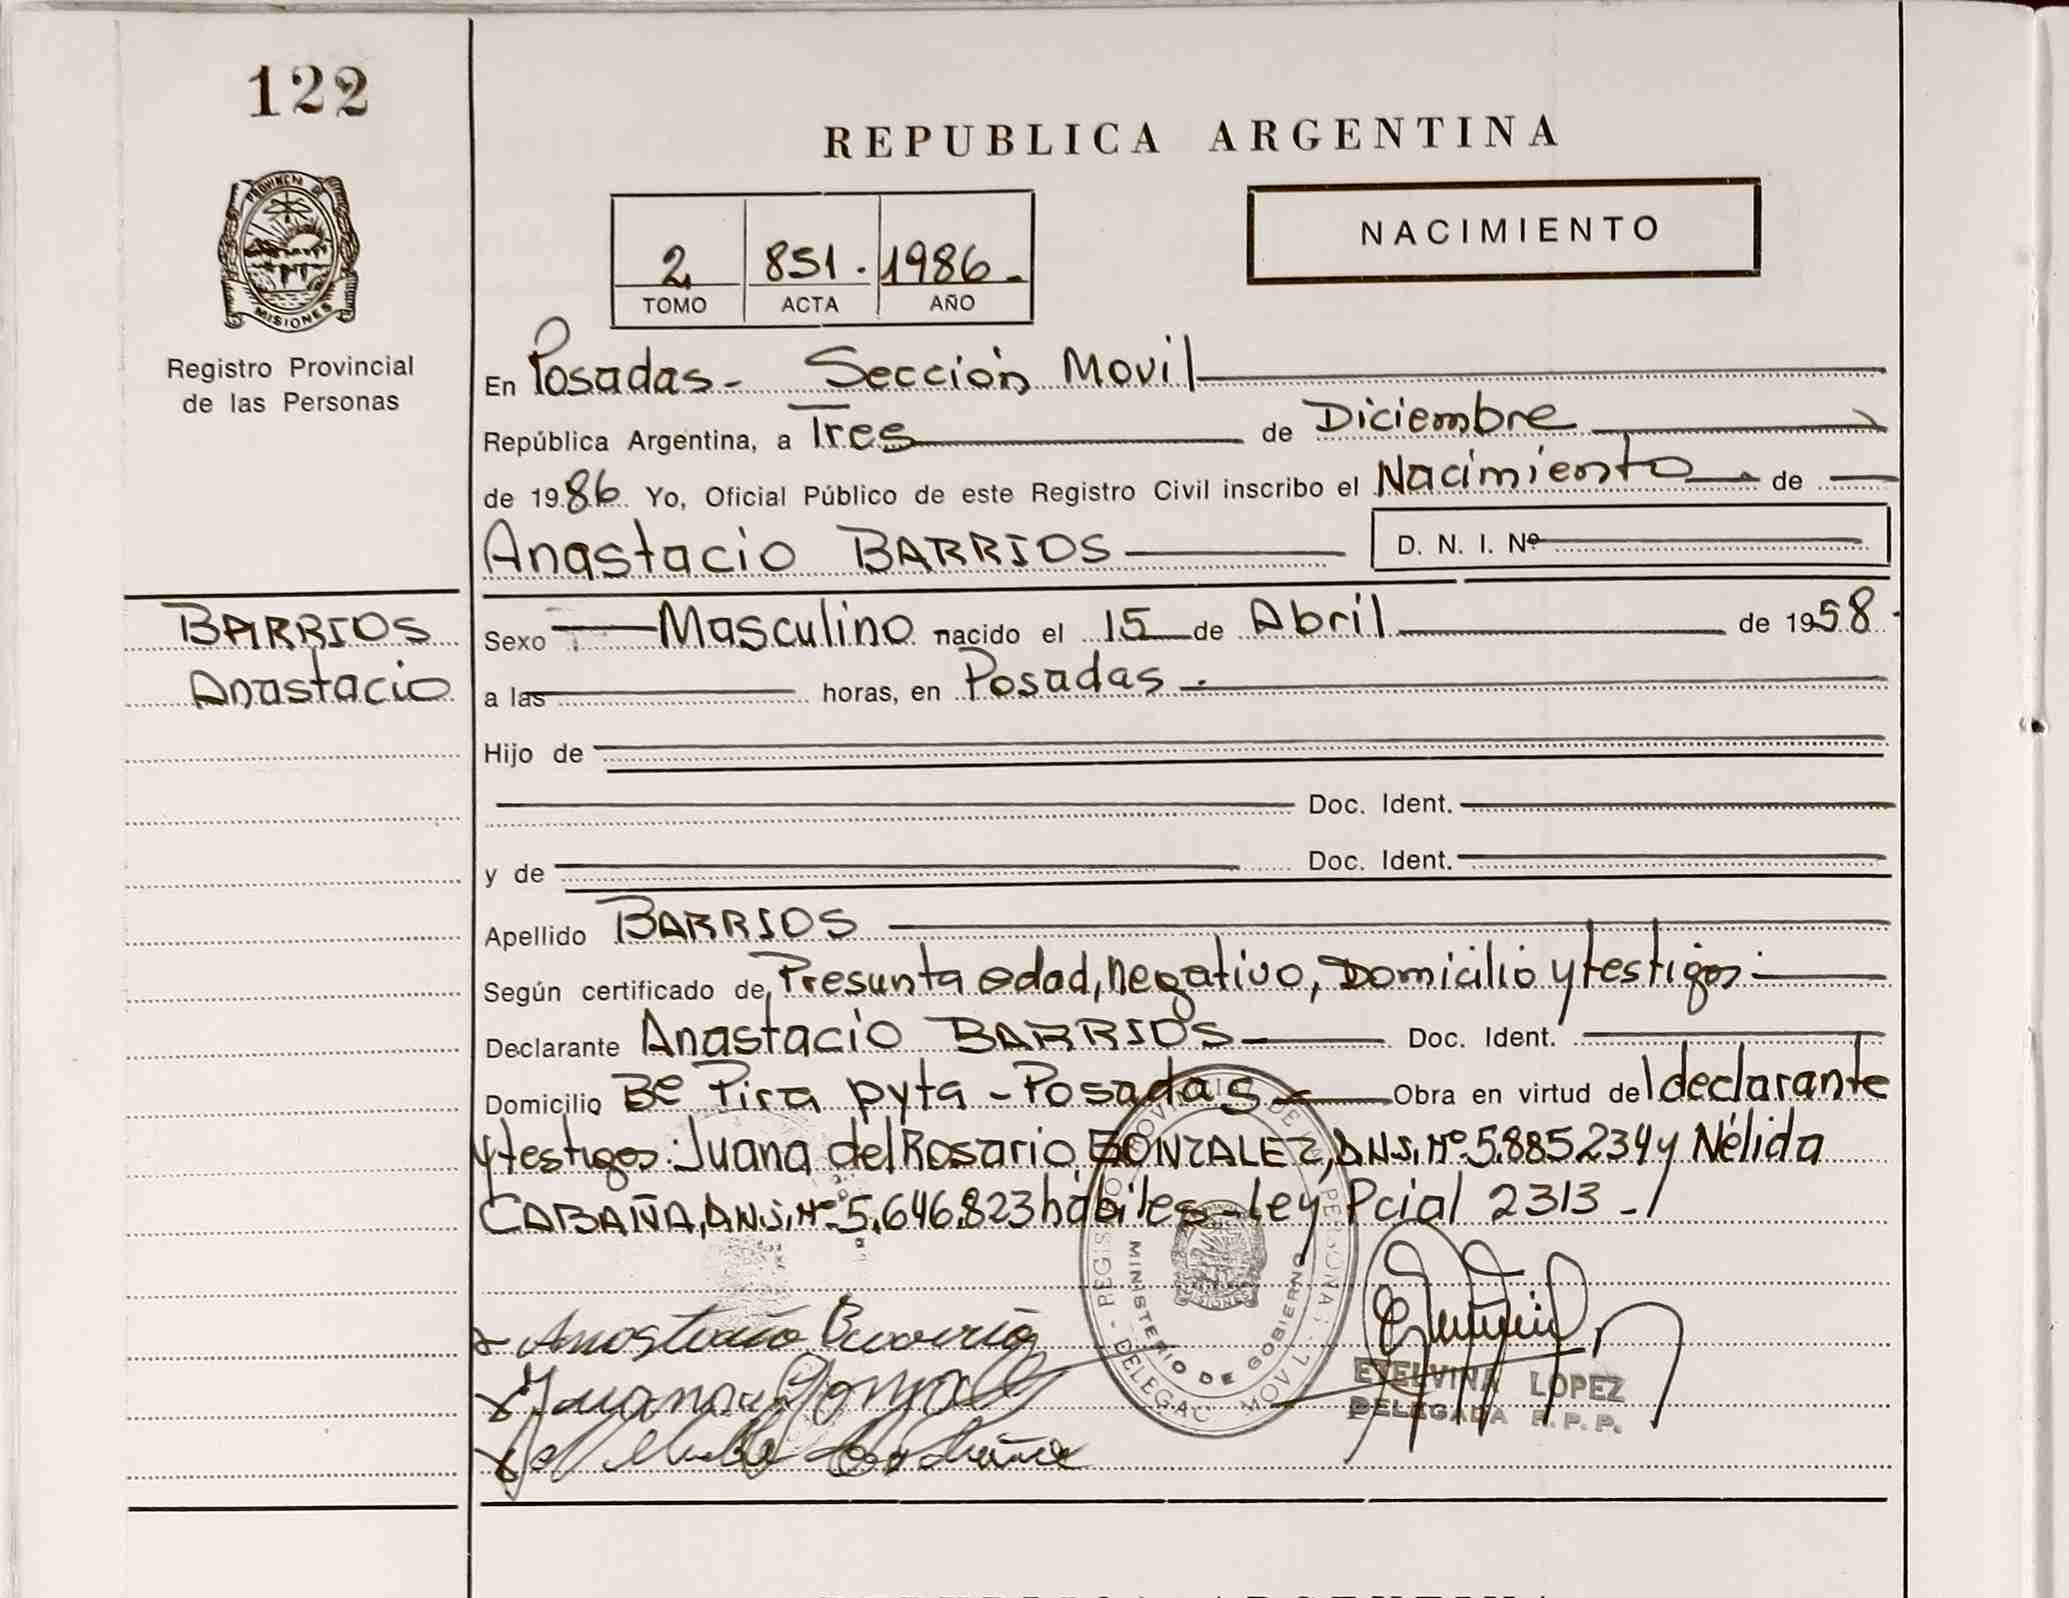 122
REPUBLICA ARGENTINA
PROVINCIA DE
MISIONES
Registro Provincial
de las Personas
NACIMIENTO
2 851. 1986.-
TOMO ACTA AÑO
En Posadas.- Sección Movil
República Argentina, a Tres de Diciembre
de 1986 Yo, Oficial Público de este Registro Civil inscribo el Nacimiento de
Anastacio BARRIOS D. N. I. Nº
BARRIOS
Anastacio
Sexo Masculino nacido el 15 de Abril de 1958.
a las horas, en Posadas.
Hijo de
Doc. Ident.
y de Doc. Ident.
Apellido BARRIOS
Según certificado de, Presunta edad, negativo, Domicilio y testigos:
Declarante Anastacio BARRIOS Doc. Ident.
Domicilio Bº Pira pyta - Posadas Obra en virtud del declarante
y testigos: Juana del Rosario GONZALEZ, D.N.I. Nº 5.885.234 y Nélida
CABAÑA, D.N.I. Nº 5.646.823 hábiles - Ley Pcial 2313 -/
MINISTERIO DE GOBIERNO
Anastacio Barrios
Juana Gonzalez
Nelida Cabaña
ETELVINA LOPEZ
DELEGADA R.P.P.